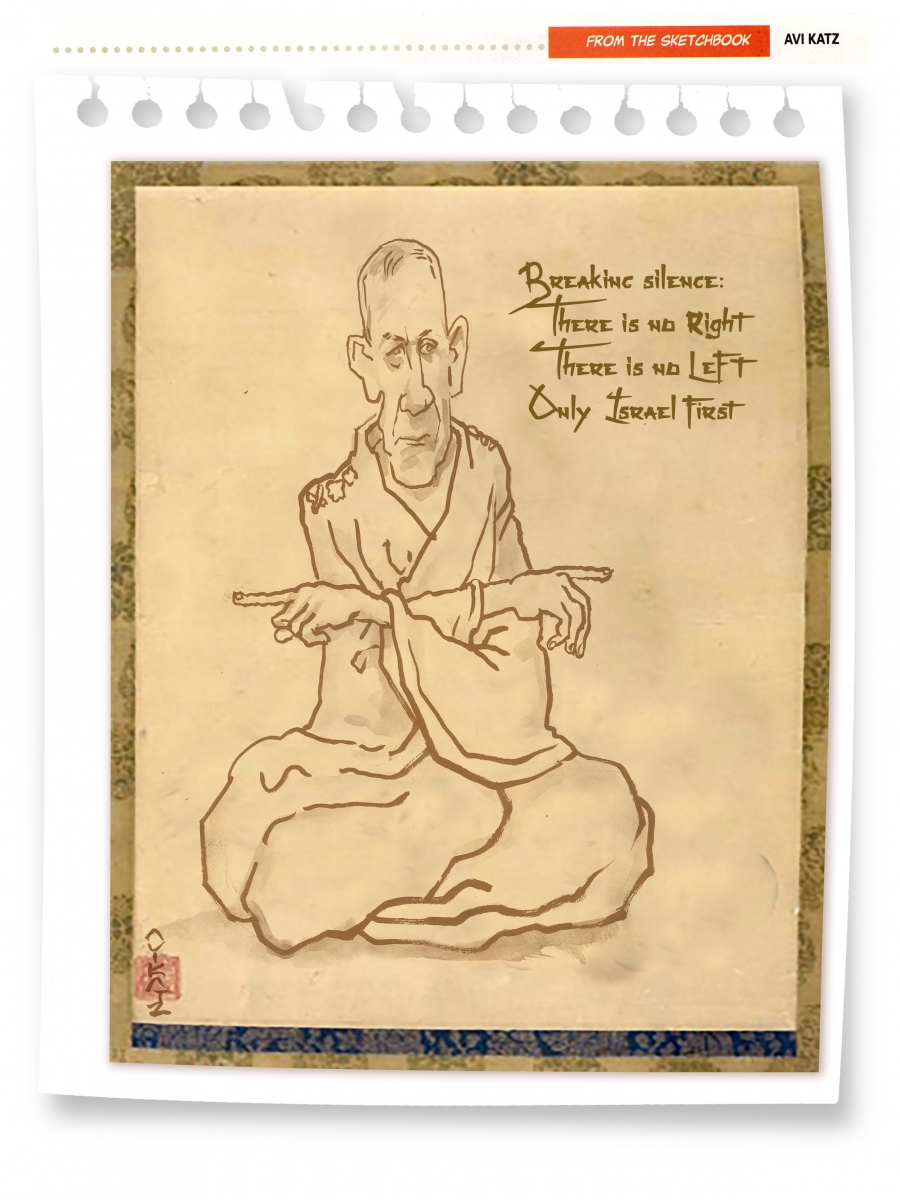 FROM THE SKETCHBOOK AVI KATZ
Breaking silence:
There is no Right
There is no Left
Only Israel first
AVI KATZ